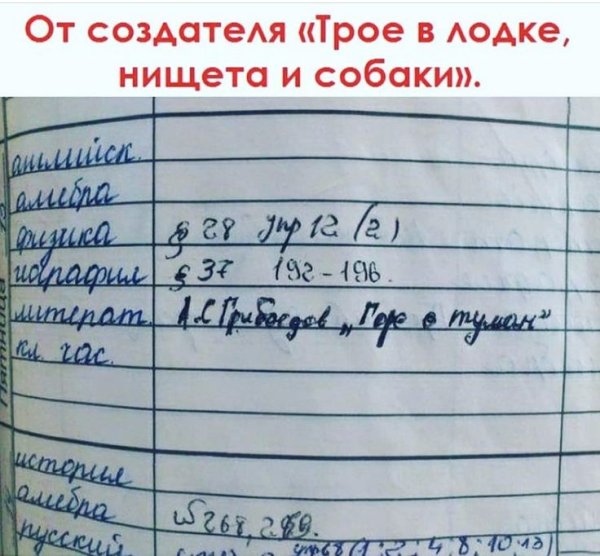 От создателя «Трое в лодке,
нищета и собаки».
английск.
алгебра
физика § 28 упр 12 (2)
география § 37 192-196.
литерат. А.С Грибоедов „Горе о туман"
кл. час.
Пятница
история
алгебра № 268, 269.
русский упр 68 (1; 2; 4; 8; 10; 13)